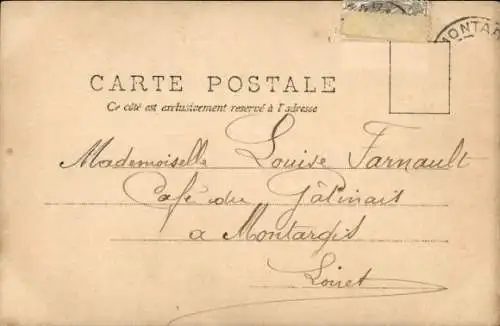 MONTAR
CARTE POSTALE
Ce côté est exclusivement reservé à l'adresse
Mademoiselle Louise Farnault
Café du Gâtinais
a Montargis
Loiret